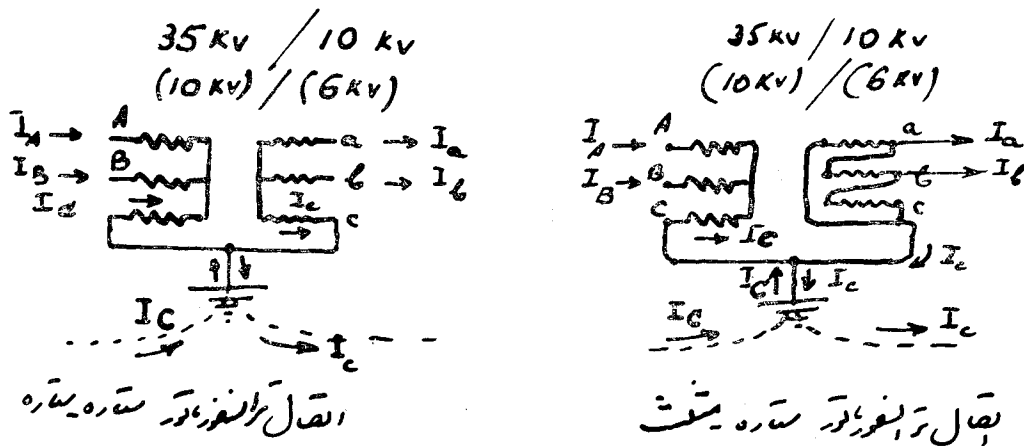 35 kv / 10 kv
(10 kv) / (6 kv)
I_A → A a → I_a
I_B → B b → I_b
I_C I_c c
I_C I_c
اتصال ترانسفورماتور ستاره - ستاره
35 kv / 10 kv
(10 kv) / (6 kv)
I_A → A a → I_a
I_B → B b → I_b
C c
→ I_C I_c
I_C ↑ ↓ I_c
I_C I_c
اتصال ترانسفورماتور ستاره - مثلث